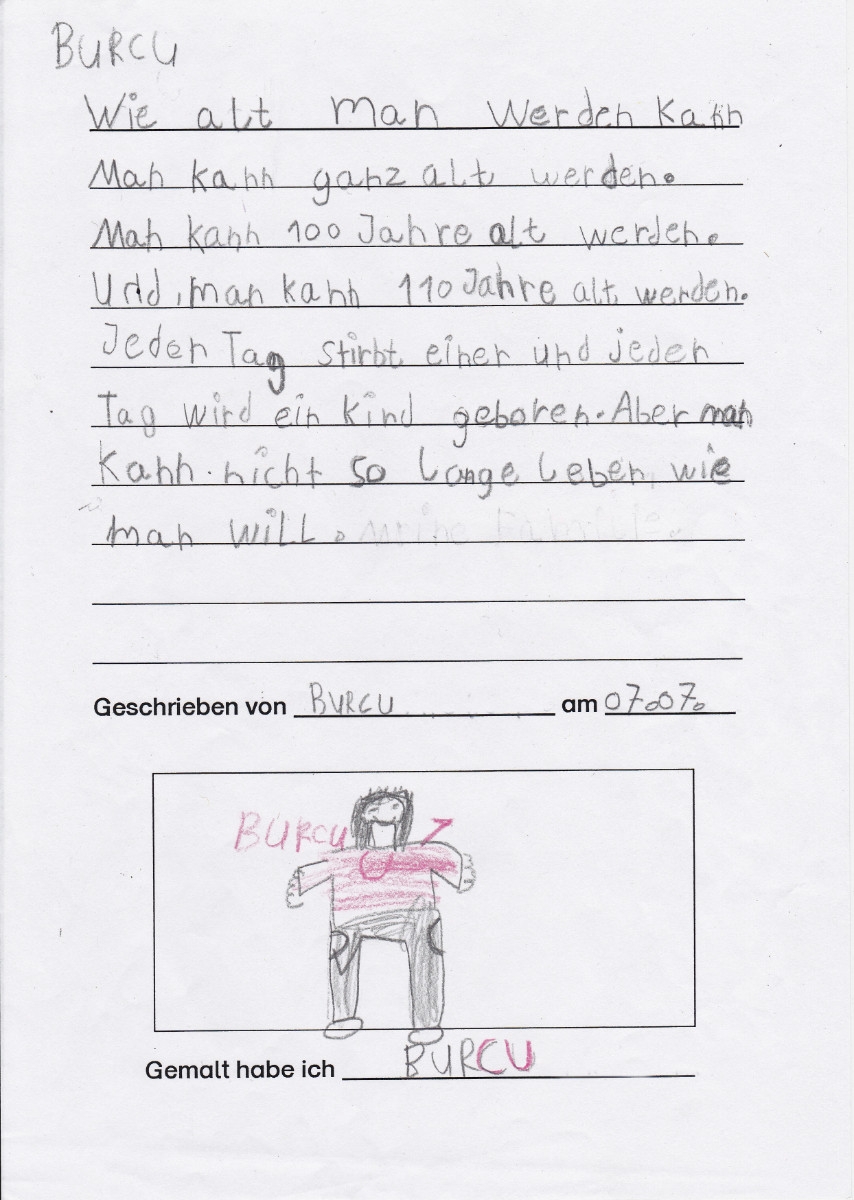 BURCU
Wie alt man werden kann
Man kann ganz alt werden.
Man kann 100 Jahre alt werden.
Und, man kann 110 Jahre alt werden.
Jeden Tag stirbt einer und jeden
Tag wird ein Kind geboren. Aber man
Kann nicht so lange leben, wie
man will. meine Familie.
Geschrieben von BURCU am 07.07.
BURCU 7
Gemalt habe ich BURCU